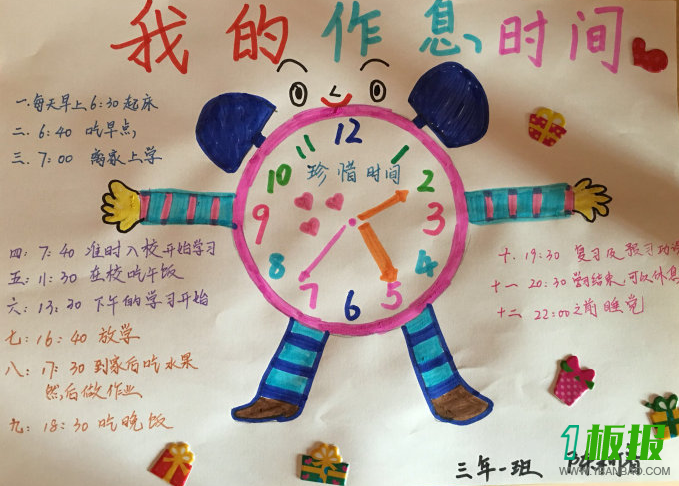 我的作息时间
一.每天早上6:30起床
二.6:40 吃早点,
三.7:00 离家上学
四:7:40 准时入校开始学习
五:11:30 在校吃午饭
六:13:30 下午的学习开始
七:16:40 放学
八:17:30 到家后吃水果
然后做作业
九:18:30 吃晚饭
12
11
1
10
2
珍惜时间
9
3
8
4
7
5
6
十.19:30 复习及预习功课
十一 20:30 学习结束,可以休息
十二 22:00之前睡觉
三年一班
1板报
WWW.YIBANBAO.COM